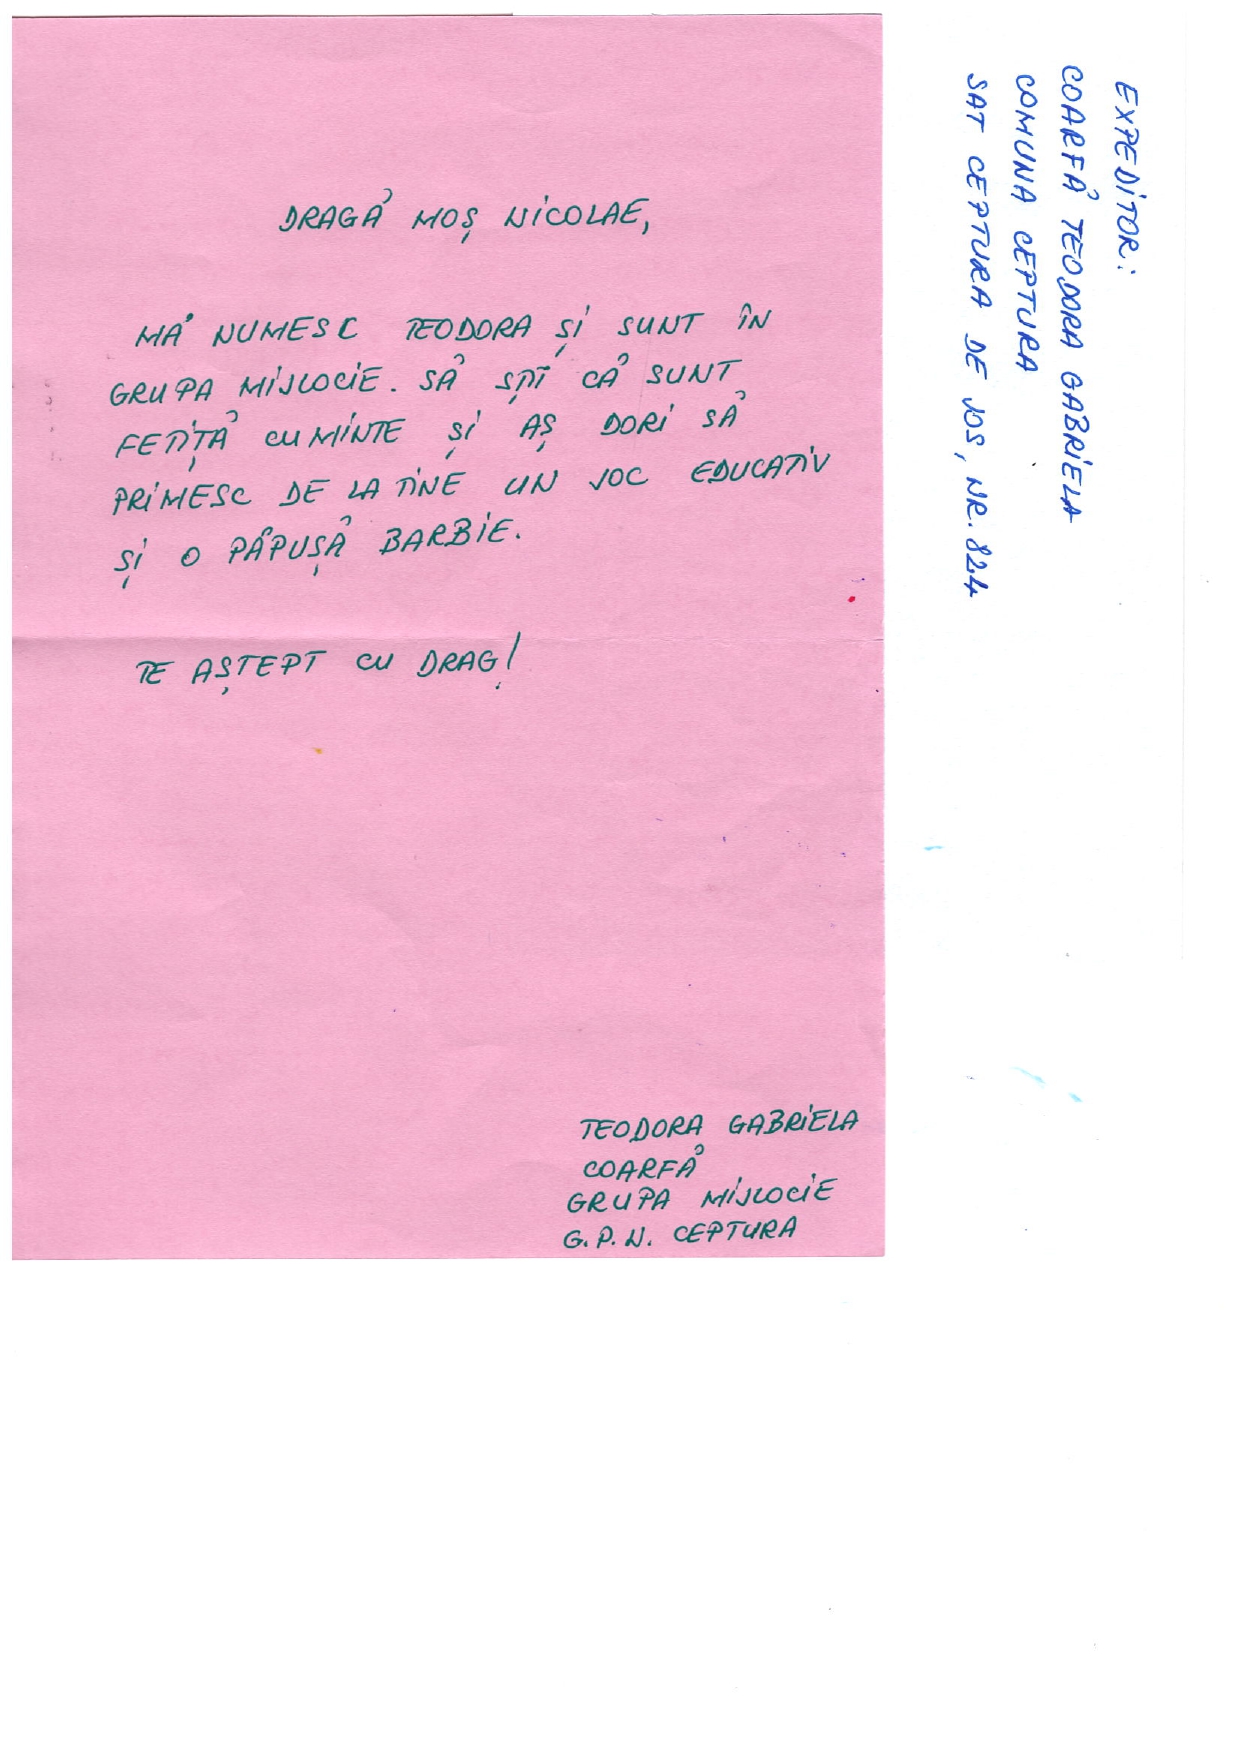 DRAGĂ MOȘ NICOLAE,
MĂ NUMESC TEODORA ȘI SUNT ÎN
GRUPA MIJLOCIE. SĂ ȘTI CĂ SUNT
FETIȚĂ CUMINTE ȘI AȘ DORI SĂ
PRIMESC DE LA TINE UN JOC EDUCATIV
ȘI O PĂPUȘĂ BARBIE.
TE AȘTEPT CU DRAG!
TEODORA GABRIELA
COARFĂ
GRUPA MIJLOCIE
G.P.N. CEPTURA
EXPEDITOR:
COARFĂ TEODORA GABRIELA
COMUNA CEPTURA
SAT CEPTURA DE JOS, NR. 824